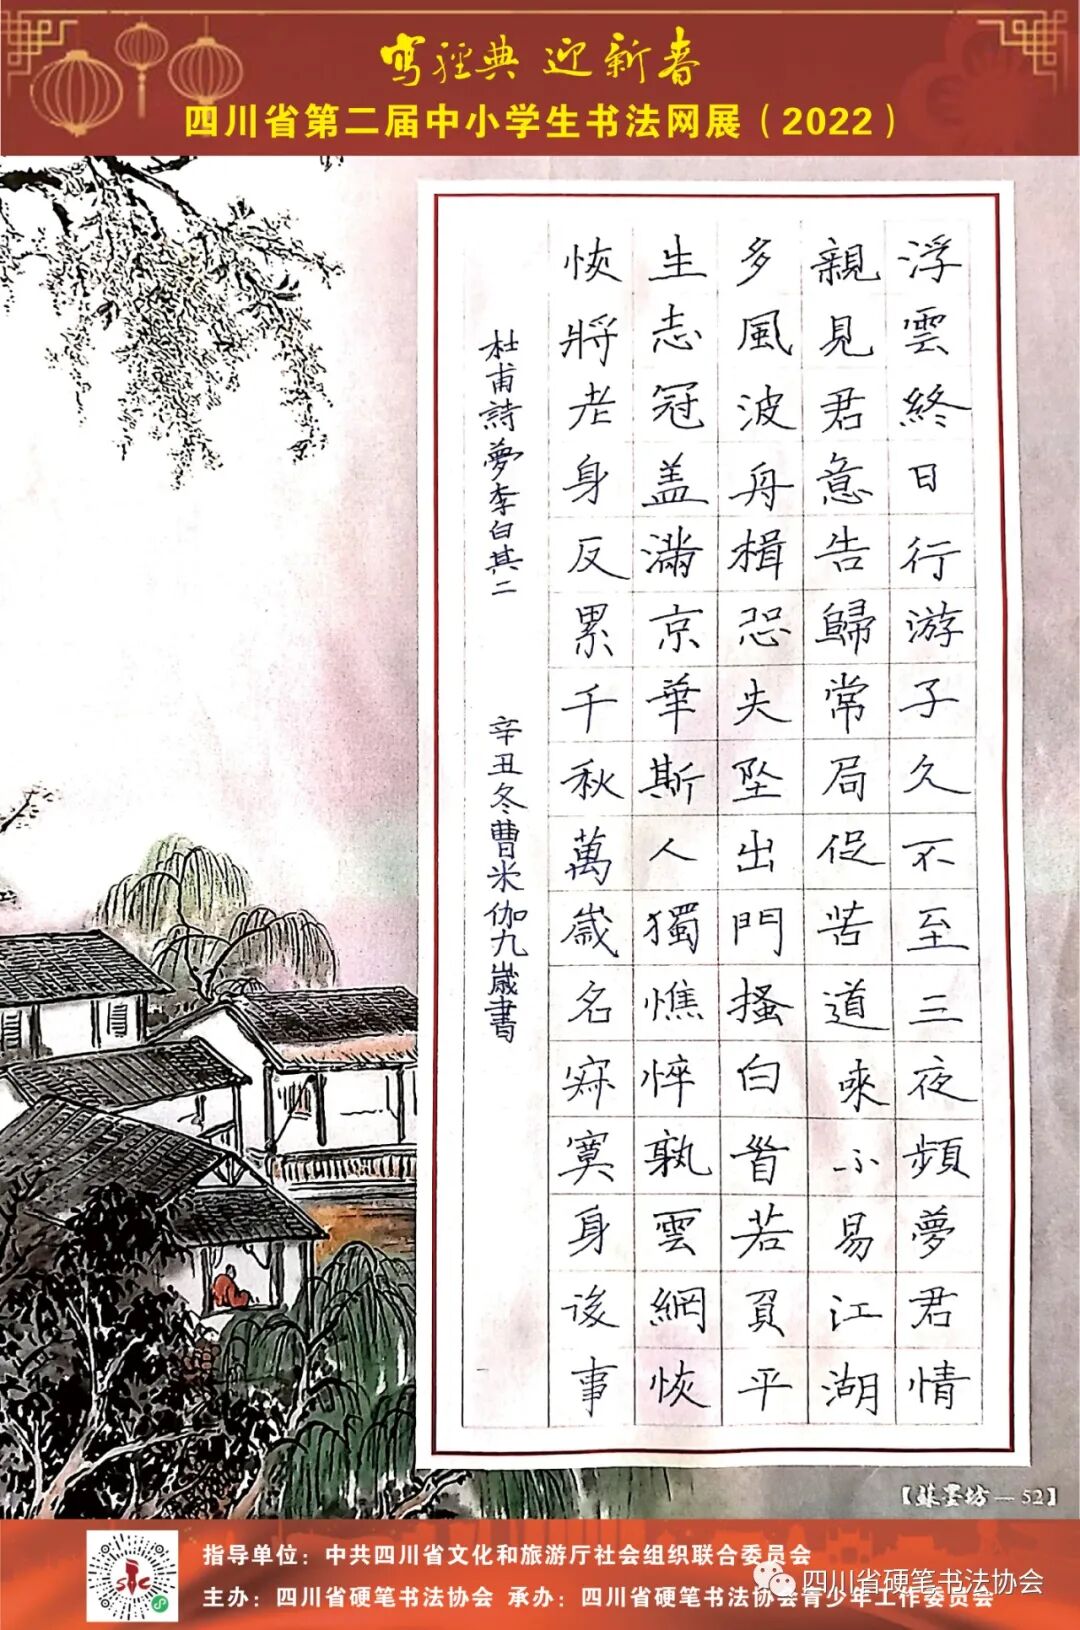 写經典 迎新春
四川省第二届中小学生书法网展（2022）
浮雲終日行游子久不至三夜頻夢君情
親見君意告歸常局促苦道來不易江湖
多風波舟楫恐失坠出門搔白首若負平
生志冠盖滿京華斯人獨憔悴孰雲網恢
恢將老身反累千秋萬歲名寂寞身後事
杜甫詩夢李白其二 辛丑冬曹米伽九歲書
【蘇墨坊—52】
指导单位：中共四川省文化和旅游厅社会组织联合委员会
主办：四川省硬笔书法协会 承办：四川省硬笔书法协会青少年工作委员会
四川省硬笔书法协会